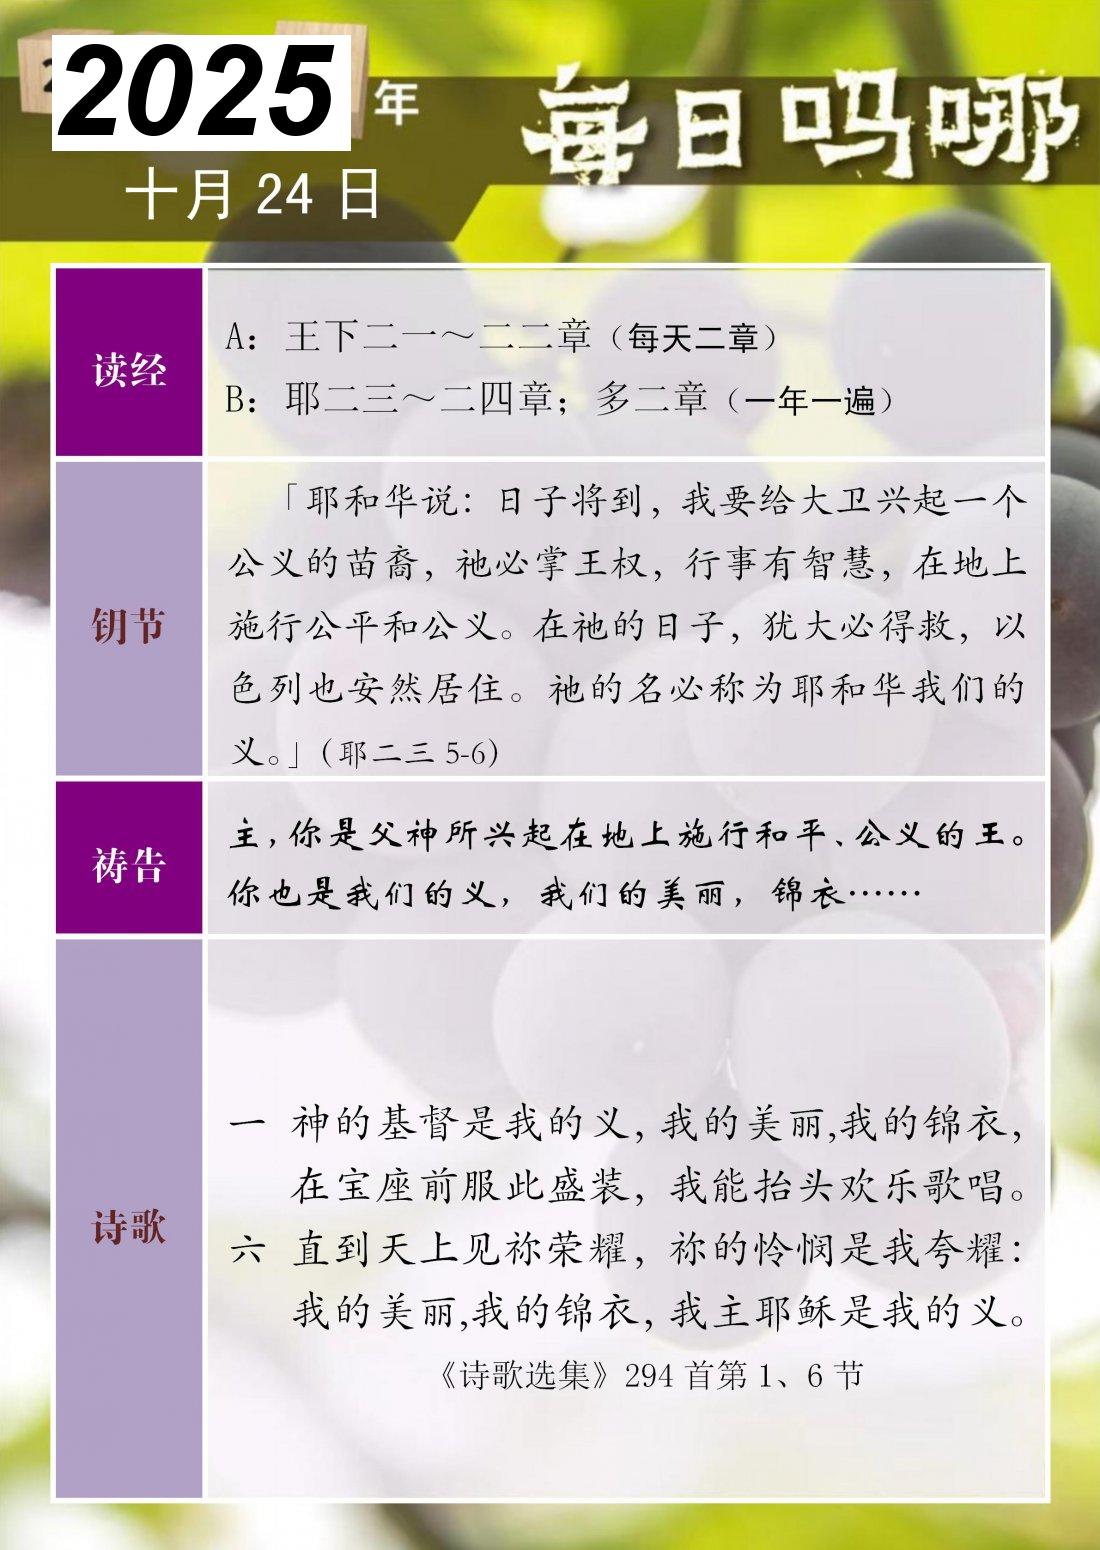 2025年
每日吗哪
十月 24 日
读经
A：王下二一～二二章（每天二章）
B：耶二三～二四章；多二章（一年一遍）
钥节
「耶和华说：日子将到，我要给大卫兴起一个
公义的苗裔，祂必掌王权，行事有智慧，在地上
施行公平和公义。在祂的日子，犹大必得救，以
色列也安然居住。祂的名必称为耶和华我们的
义。」（耶二三 5-6）
祷告
主，你是父神所兴起在地上施行和平、公义的王。
你也是我们的义，我们的美丽，锦衣……
诗歌
一 神的基督是我的义，我的美丽,我的锦衣，
在宝座前服此盛装，我能抬头欢乐歌唱。
六 直到天上见祢荣耀，祢的怜悯是我夸耀：
我的美丽,我的锦衣，我主耶稣是我的义。
《诗歌选集》294 首第 1、6 节